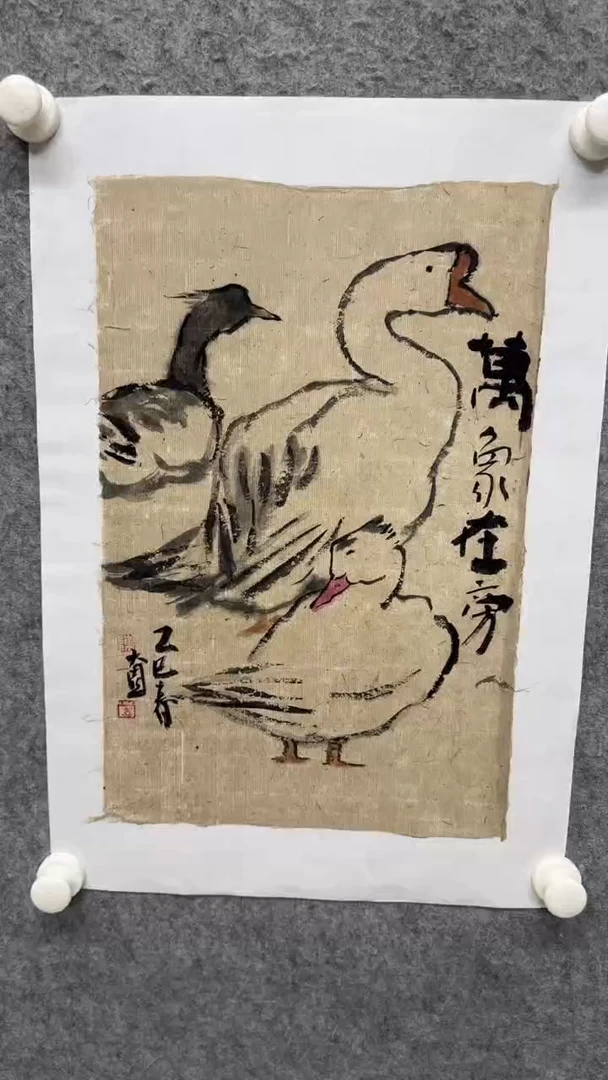 萬象在旁
乙巳春